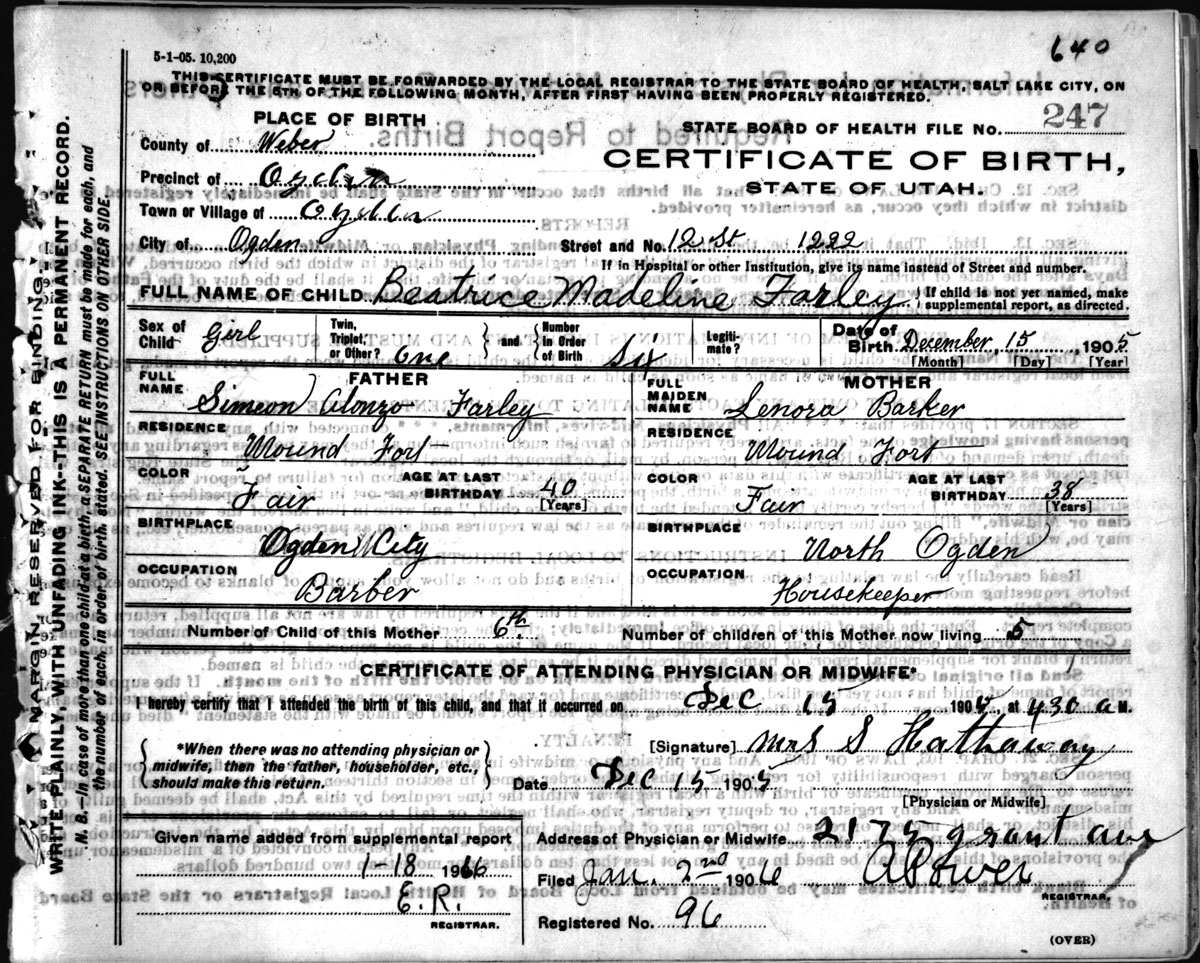 640
5-1-05. 10,200
THIS CERTIFICATE MUST BE FORWARDED BY THE LOCAL REGISTRAR TO THE STATE BOARD OF HEALTH, SALT LAKE CITY, ON
OR BEFORE THE 5TH OF THE FOLLOWING MONTH, AFTER FIRST HAVING BEEN PROPERLY REGISTERED.
PLACE OF BIRTH
STATE BOARD OF HEALTH FILE NO. 247
County of Weber
CERTIFICATE OF BIRTH,
Precinct of Ogden
STATE OF UTAH.
Town or Village of Ogden
City of Ogden Street and No. 12 St 1222
If in Hospital or other Institution, give its name instead of Street and number.
FULL NAME OF CHILD Beatrice Madeline Farley { If child is not yet named, make supplemental report, as directed.
Sex of Child Girl Twin, Triplet, or Other? One } and { Number in Order of Birth Six Legitimate? Date of Birth December 15, 1905
[Month] [Day] [Year]
FATHER MOTHER
FULL NAME Simeon Alonzo Farley FULL MAIDEN NAME Lenora Barker
RESIDENCE Mound Fort RESIDENCE Mound Fort
COLOR Fair AGE AT LAST BIRTHDAY 40 [Years] COLOR Fair AGE AT LAST BIRTHDAY 38 [Years]
BIRTHPLACE Ogden City BIRTHPLACE North Ogden
OCCUPATION Barber OCCUPATION Housekeeper
Number of Child of this Mother 6th. Number of children of this Mother now living 5
CERTIFICATE OF ATTENDING PHYSICIAN OR MIDWIFE*
I hereby certify that I attended the birth of this child, and that it occurred on Dec 15 1905, at 430 a M.
{ *When there was no attending physician or midwife, then the father, householder, etc., should make this return. }
[Signature] Mrs S Hathaway
Date Dec 15 1905
[Physician or Midwife]
Given name added from supplemental report
1-18 1966
E.R.
REGISTRAR.
Address of Physician or Midwife 2175 grant ave
Filed Jan. 2nd 1906
REGISTRAR.
Registered No. 96
(OVER)
MARGIN RESERVED FOR BINDING.
WRITE PLAINLY, WITH UNFADING INK--THIS IS A PERMANENT RECORD.
N. B.--In case of more than one child at a birth, a SEPARATE RETURN must be made for each, and
the number of each, in order of birth, stated. SEE INSTRUCTIONS ON OTHER SIDE.